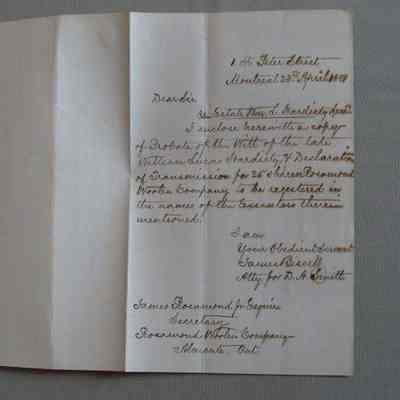 1 St Peter Street
Montreal 23rd April
Dear Sir
Re Estate Wm. L. Hardisty
I enclose herewith a copy
of Probate of the Will of the late
William Lucas Hardisty & Declaration
of Transmission for 25 shares Rosamond
Woolen Company to be registered in
the names of the Executors therein
mentioned.
I am
Your Obedient Servant
James
Atty for D. A. Smith
James Rosamond Jr Esquire
Secretary
Rosamond Woolen Company
Almonte, Ont